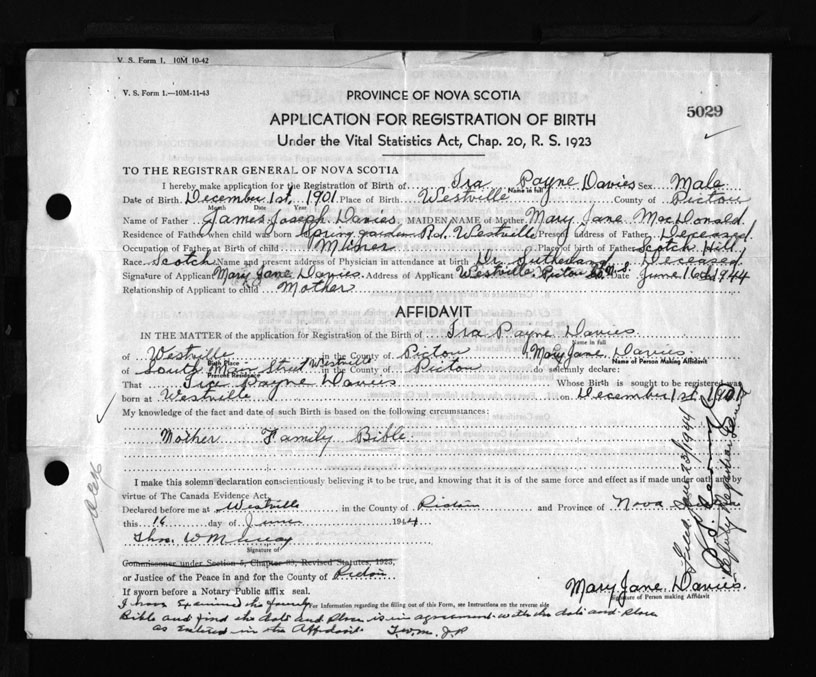 V. S. Form 1. 10M 10-42
V. S. Form 1.—10M-11-43
PROVINCE OF NOVA SCOTIA
5029
APPLICATION FOR REGISTRATION OF BIRTH
Under the Vital Statistics Act, Chap. 20, R. S. 1923
TO THE REGISTRAR GENERAL OF NOVA SCOTIA
I hereby make application for the Registration of Birth of Ira Payne Davies Sex Male
Name in full
Date of Birth December 1st 1901 Place of Birth Westville County of Pictou
Month Date Year
Name of Father James Joseph Davies, MAIDEN NAME of Mother Mary Jane MacDonald
Residence of Father when child was born Spring garden Rd. Westville Present address of Father Deceased
Occupation of Father at Birth of child Miner Place of birth of Father Scotch Hill
Race Scotch Name and present address of Physician in attendance at birth Dr. Sutherland Deceased
Signature of Applicant Mary Jane Davies Address of Applicant Westville, Pictou Co N.S. Date June 16th 1944
Relationship of Applicant to child Mother
AFFIDAVIT
IN THE MATTER of the application for Registration of the Birth of Ira Payne Davies
Name in full
of Westville in the County of Pictou I, Mary Jane Davies
Birth Place Name of Person Making Affidavit
of South Main Street Westville in the County of Pictou do solemnly declare:
Present Residence
That Ira Payne Davies Whose Birth is sought to be registered was
born at Westville on December 1st 1901
My knowledge of the fact and date of such Birth is based on the following circumstances:
Mother Family Bible
I make this solemn declaration conscientiously believing it to be true, and knowing that it is of the same force and effect as if made under oath and by
virtue of The Canada Evidence Act.
Declared before me at Westville in the County of Pictou and Province of Nova
this 16 day of June 1944
Thos. W Murray
Signature of
Commissioner under Section 5, Chapter 63, Revised Statutes, 1923,
or Justice of the Peace in and for the County of Pictou
If sworn before a Notary Public affix seal.
Mary Jane Davies.
Signature of Person making Affidavit
For Information regarding the filling out of this Form, see Instructions on the reverse side
I have Examined the family
Bible and find the date and place is in agreement with the date and place
as Entered in the Affidavit. T.W.M. J.P
Deputy Registrar